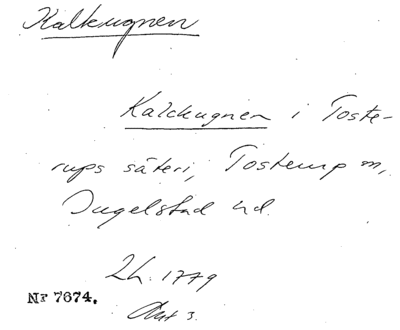 Kalkugnen
Kalckugnen i Toste-
rups säteri, Tosterup sn,
Ingelstad hd.
Lh. 1779
Akt 3.
Nr 7674.